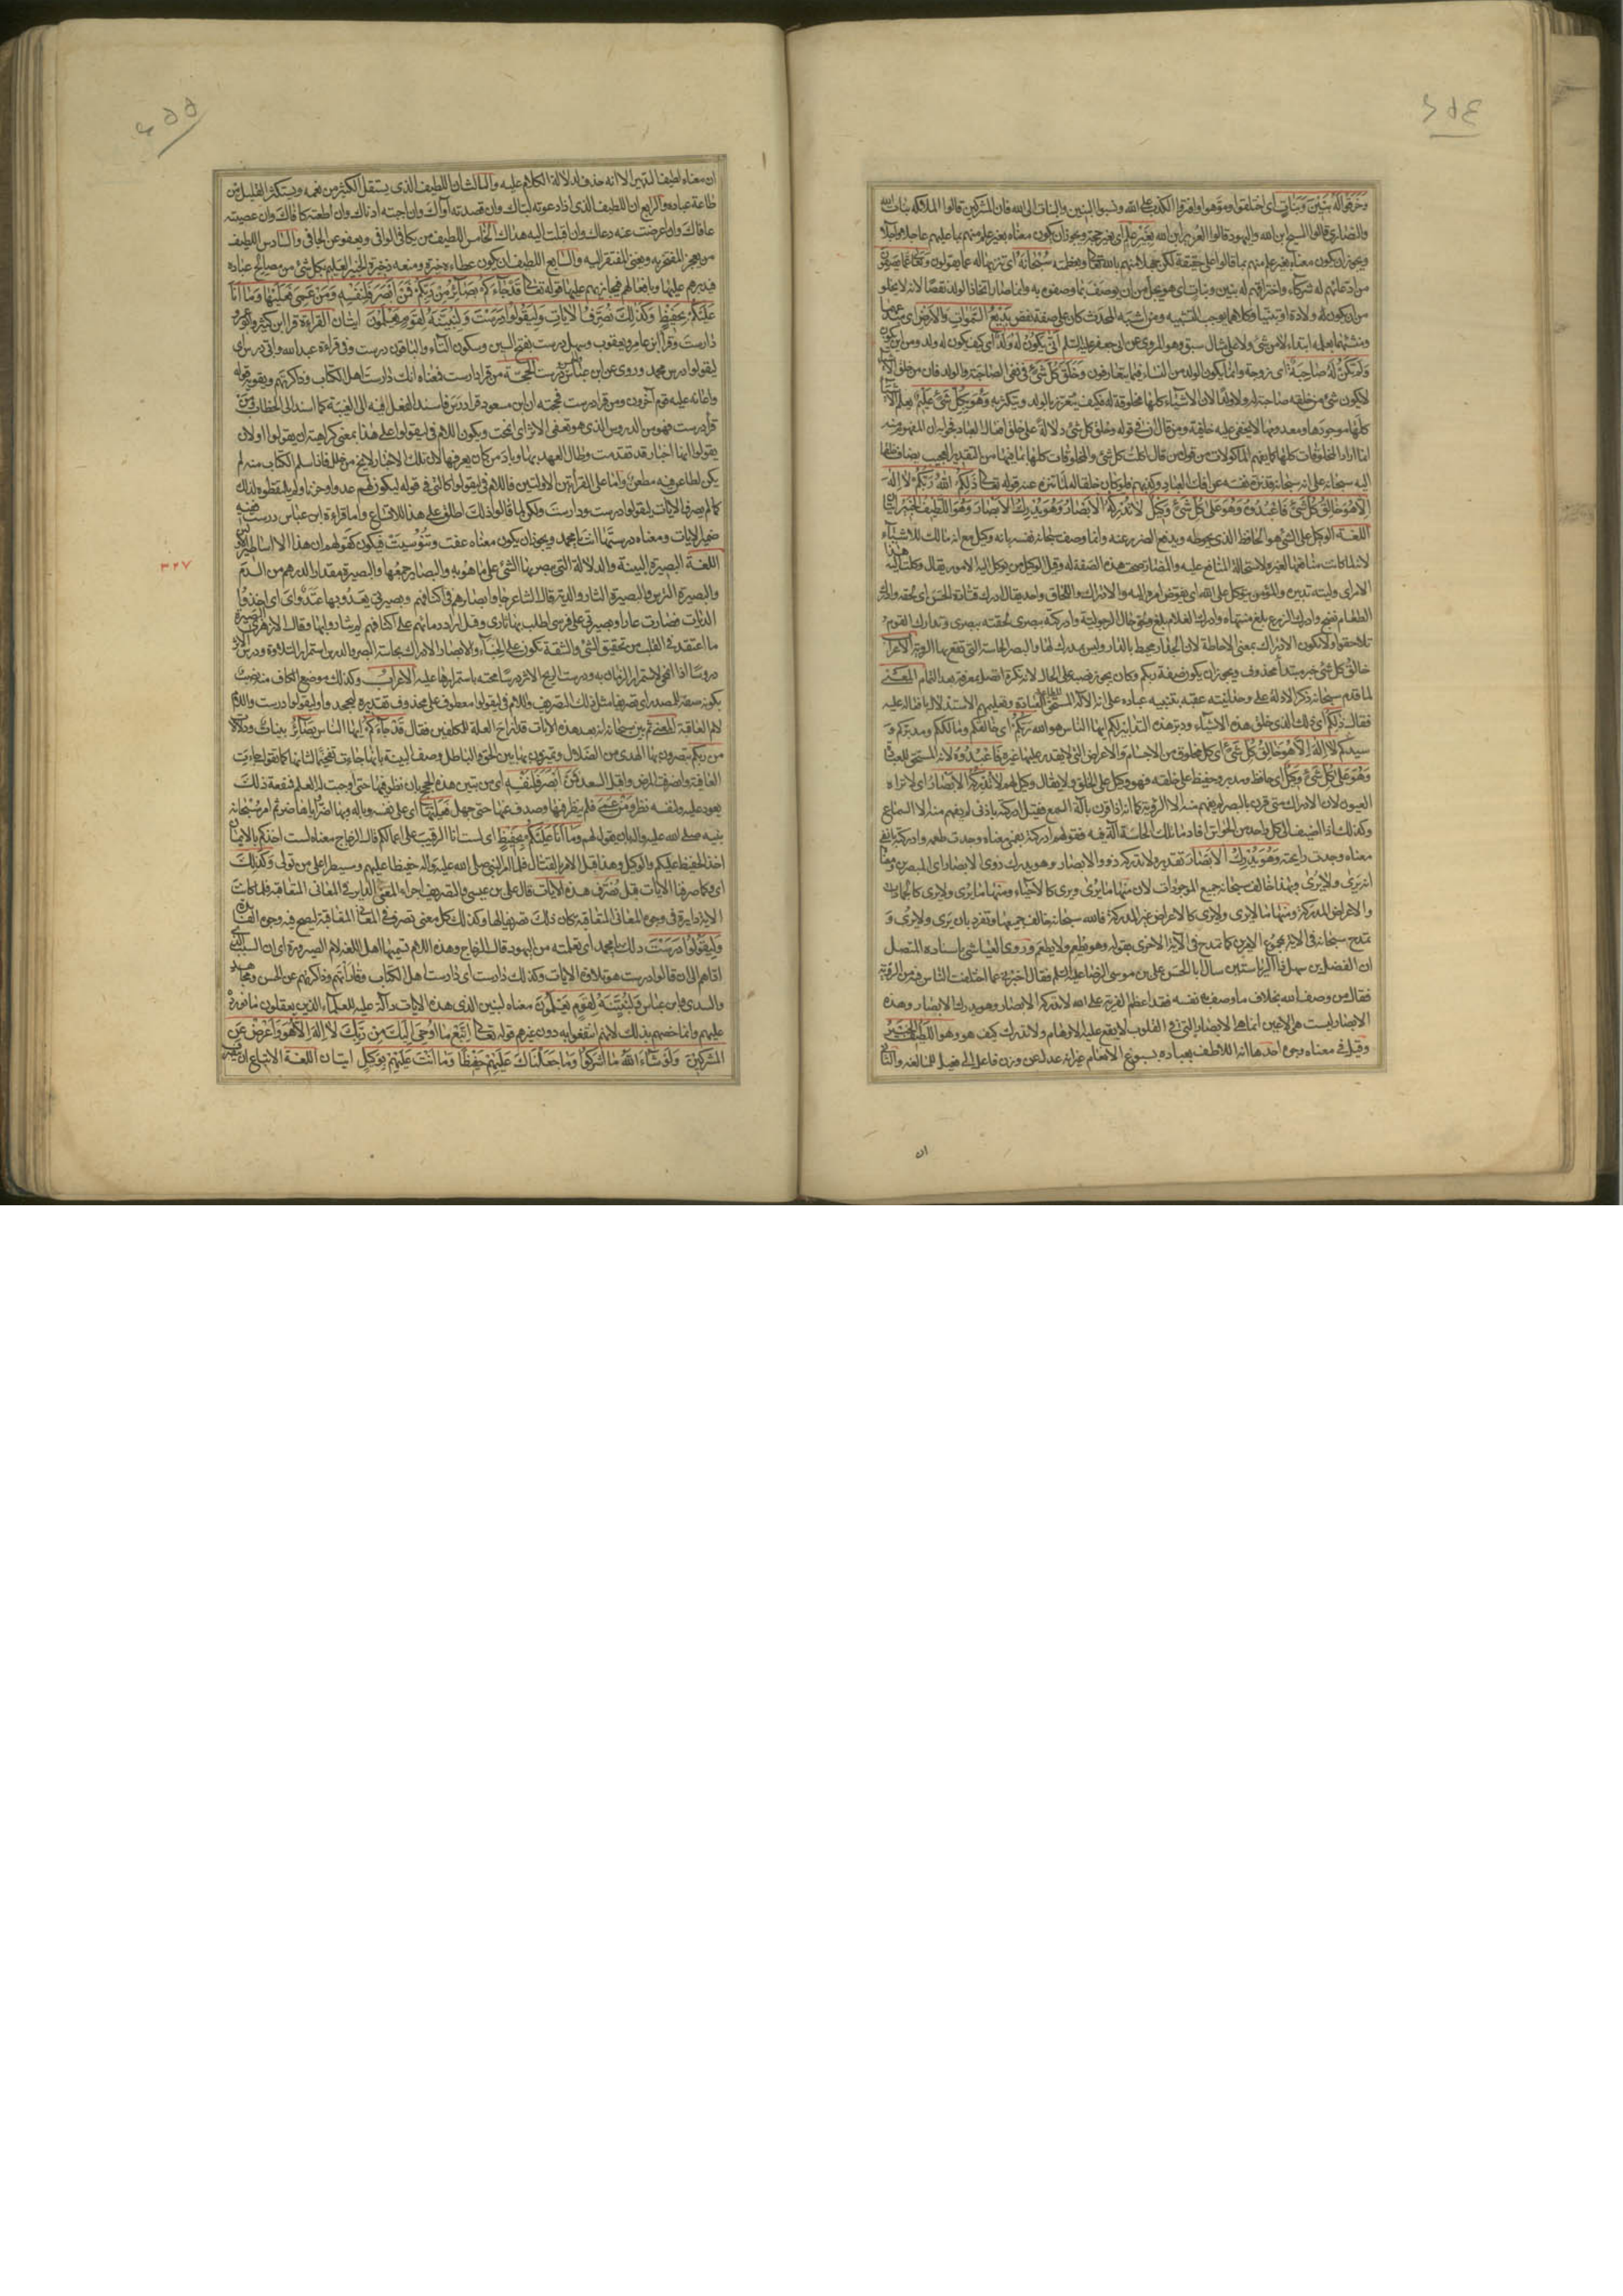 وخرقوا له بنين وبنات اى اختلقوا وموهوا وافتروا الكذب على الله ونسبوا البنين والبنات الى الله فان المشركين قالوا الملائكة بنات الله
والنصارى قالوا المسيح ابن الله واليهود قالوا العزير ابن الله بغير علم اى بغير حجة ويجوز ان يكون معناه بغير علم منهم بما عليهم عاجلا واجلا
ويجوز ان يكون معناه بغير علم منهم بما قالوا على حقيقة لكن جهلا منهم بالله تعالى وبعظمته سبحانه اى تنزيها له عما يقولون وتعالى عما يصفون
من ادعائهم له شركاء واختراقهم له بنين وبنات اى هو يجل من ان يوصف بما وصفوه به وانما صار اتخاذ الولد نقصا لانه لا يخلو
من ان يكون له ولادة او تبنيا وكلاهما يوجب التشبيه ومن اشبه المحدث كان على صفة نقص بديع السموات والارض اى مبدعهما
ومنشئهما بعلمه ابتداء لا من شئ ولا على مثال سبق وهو المروى عن ابى جعفر عليه السلم انى يكون له ولد اى كيف يكون له ولد ومن اين يكون
ولم تكن له صاحبة اى زوجة وانما يكون الولد من النساء فيما يتعارفون وخلق كل شئ فى نفى الصاحبة والولد فان من خلق الاشياء
لا يكون شئ من خلقه صاحبة له ولا ولدا لان الاشياء كلها مخلوقة له فكيف يتعزز بالولد ويتكثر به وهو بكل شئ عليم يعلم الاشياء
كلها موجودها ومعدومها لا يخفى عليه خافية ومن قال ان فى قوله وخلق كل شئ دلالة على خلق افعال العباد فجوابه ان المفهوم منه
انه اراد المخلوقات كلها كما يفهم الماكولات من قول من قال اكلت كل شئ والمخلوقات كلها بما فيها من التقدير العجيب يضاف خلقها
اليه سبحانه على انه سبحانه قد نزه نفسه عن افك العباد وكذبهم فلو كان خلقا له لما تنزه عنه قوله تعالى ذلكم الله ربكم لا اله
الا هو خالق كل شئ فاعبدوه وهو على كل شئ وكيل لا تدركه الابصار وهو يدرك الابصار وهو اللطيف الخبير ايتان
اللغة الوكيل على الشئ هو الحافظ الذى يحوطه ويدفع الضرر عنه وانما وصف سبحانه نفسه بانه وكيل مع انه مالك للاشياء
لانه لما كانت منافعها لغيره لاستحالة المنافع عليه والمضار صحت هذه الصفة له وقيل الوكيل من يوكل اليه الامور يقال وكلت اليه هذا
الامر اى وليته تدبيره والمؤمن يتوكل على الله اى يفوض امره اليه والادراك واللحاق واحد يقال ادرك قتادة الحسن اى لحقه وادرك
الطعام نضج وادرك الزرع بلغ منتهاه وادرك الغلام بلغ ولحق حال الرجولية وادركته ببصرى لحقته ببصرى وتدارك القوم
تلاحقوا ولا يكون الادراك بمعنى الاحاطة لان الجدار محيط بالدار وليس بمدرك لها والبصر الحاسة التى تقع بها الروية الاعراب
خالق كل شئ خبر مبتدأ محذوف ويجوز ان يكون صفة ربكم وكان يجوز نصبه على الحال لانه نكرة اتصل بمعرفة بعد التمام المعنى
لما قدم سبحانه ذكر الادلة على وحدانيته عقبه بتنبيه عباده على انه الاله المستحق للعبادة وتعليمهم الاستدلال بافعاله عليه
فقال ذلكم اى ذلك الذى خلق هذه الاشياء ودبر هذه التدابير لكم ايها الناس هو الله ربكم اى خالقكم ومالككم ومدبركم و
سيدكم لا اله الا هو خالق كل شئ اى كل مخلوق من الاجسام والاعراض التى لا يقدر عليها غيره فاعبدوه لانه المستحق للعبادة
وهو على كل شئ وكيل اى حافظ ومدبر وحفيظ على خلقه فهو وكيل على الخلق ولا يقال وكيل لهم لا تدركه الابصار اى لا تراه
العيون لان الادراك متى قرن بالبصر لم يفهم منه الا الروية كما انه اذا قرن بآلة السمع فقيل ادركته باذنى لم يفهم منه الا السماع
وكذلك اذا اضيف الى كل واحد من الحواس افاد ما تلك الحاسة آلة فيه فقولهم ادركته بفمى معناه وجدت طعمه وادركته بانفى
معناه وجدت رائحته وهو يدرك الابصار تقديره لا تدركه ذوو الابصار وهو يدرك ذوى الابصار اى المبصرين ومعناه
انه يرى ولا يرى وبهذا خالف سبحانه جميع الموجودات لان منها ما يرى ويرى كالاحياء ومنها ما يرى ولا يرى كالجمادات
والاعراض المدركة ومنها ما لا يرى ولا يرى كالاعراض غير المدركة فالله سبحانه خالف جميعها وتفرد بان يرى ولا يرى و
تمدح سبحانه فى الاية بمجموع الامرين كما تمدح فى الآية الاخرى بقوله وهو يطعم ولا يطعم وروى العياشى باسناده المتصل
ان الفضل بن سهل ذا الرياستين سال ابا الحسن على بن موسى الرضا عليه السلم فقال اخبرنى عما اختلفت الناس فيه من الروية
فقال من وصف الله بخلاف ما وصف به نفسه فقد اعظم الفرية على الله لا تدركه الابصار وهو يدرك الابصار وهذه
الابصار ليست هى الاعين انما هى الابصار التى فى القلوب لا يقع عليه الاوهام ولا تدرك كيف هو وهو اللطيف الخبير
وقيل فى معناه وجوه احدها انه اللاطف بعباده بسبوغ الانعام غير انه عدل عن وزن فاعل الى فعيل للمبالغة والثانى
ان
ان معناه لطيف التدبير الا انه حذف لدلالة الكلام عليه والثالث ان اللطيف الذى يستقل الكثير من نعمه ويستكثر القليل من
طاعة عباده والرابع ان اللطيف الذى اذا دعوته لباك وان قصدته آواك وان احببته ادناك وان اطعته كافاك وان عصيته
عافاك وان اعرضت عنه دعاك وان اقبلت اليه هداك الخامس اللطيف من يكافى الوافى ويعفو عن الجافى والسادس اللطيف
من يعز المفتخر به ويغنى المفتقر اليه والسابع اللطيف ان يكون عطاءه خيرة ومنعه ذخيرة الخبير العليم بكل شئ من مصالح عباده
فيدبرهم عليها وبافعالهم فيجازيهم عليها قوله تعالى قد جاءكم بصائر من ربكم فمن ابصر فلنفسه ومن عمى فعليها وما انا
عليكم بحفيظ وكذلك نصرف الايات وليقولوا درست ولنبينه لقوم يعلمون ايتان القراءة قرا ابن كثير وابو عمرو
دارست وقرا ابن عامر ويعقوب وسهل درست بفتح السين وسكون التاء والباقون درست وفى قراءة عبد الله وابى درس اى
ليقولوا درس محمد وروى عن ابن عباس درست الحجة من قرا دارست فمعناه انك دارست اهل الكتاب وذاكرتهم ويقويه قوله
واعانه عليه قوم آخرون ومن قرا درست فحجته ان ابن مسعود قرا درس فاسند الفعل فيه الى الغيبة كما اسند الى الخطاب ومن
قرا درست فهو من الدروس الذى هو تعفى الاثر اى انمحت ويكون اللام فى ليقولوا على هذا بمعنى كراهية ان يقولوا او لان
يقولوا انها اخبار قد تقدمت وطال العهد بها وباد من كان يعرفها لان تلك الاخبار لا يخ من خلل فاذا سلم الكتاب منه لم
يكن لطاعن فيه مطعن واما على القرأتين الاولتين فاللام فى ليقولوا كالتى فى قوله ليكون لهم عدوا وحزنا ولم يلتقطوه لذلك
كما لم يصرف الايات ليقولوا درست ودارست ولكن لما قالوا ذلك اطلق على هذا للاتساع واما قراءة ابن عباس درست ففيه
ضمير الايات ومعناه درستها انت يا محمد ويجوز ان يكون معناه عفت وتنوسيت فيكون كقولهم ان هذا الا اساطير الاولين
اللغة البصيرة البينة والدلالة التى يبصر بها الشئ على ما هو به والبصائر جمعها والبصيرة مقدار الدرهم من الدم
والبصيرة الترس والبصيرة الثار والدية قال الشاعر جاوا بصائرهم فى اكتافهم وبصيرتى يعدو بها عتد واى اى اخذوا
الديات فصارت عارا وبصيرتى على فرسى اطلب بها ثارى وقيل اراد دمائهم على اكتافهم لم يثاروا بها وقال الازهرى البصيرة
ما اعتقد فى القلب من تحقيق الشئ والشقة تكون على الخباء والابصار الادراك بحاسة البصر والدرس استمرار التلاوة ودرس الاثر
دروسا اذا انمحى لاستمرار الزمان به ودرست الريح الاثر درسا محته باستمرارها عليه الاعراب وكذلك موضع الكاف منه نصب
بكونه صفة للمصدر اى تصريفا مثل ذلك التصريف واللام فى ليقولوا معطوف على محذوف تقديره ليجحدوا وليقولوا درست واللام
لام العاقبة المعنى ثم بين سبحانه انه بعد هذه الايات قد ازاح العلة للمكلفين فقال قد جاءكم ايها الناس بصائر بينات ودلالات
من ربكم تبصرون بها الهدى من الضلال وتميزون بها بين الحق والباطل ووصف البينة بانها جاءت تفخيما لشانها كما تقول جاءت
العافية وانصرف المرض واقبل السعد فمن ابصر فلنفسه اى من تبين هذه الحجج بان نظر فيها حتى اوجبت له العلم فمنفعة ذلك
يعود عليه ولنفسه نظر ومن عمى فلم ينظر فيها وصدف عنها حتى جهل فعليها اى على نفسه وباله وبها اضر واياها ضر ثم امر سبحانه
نبيه صلى الله عليه واله بان يقول لهم وما انا عليكم بحفيظ اى لست انا الرقيب على اعمالكم قال الزجاج معناه لست اخذكم بالايمان
اخذ الحفيظ عليكم والوكيل وهذا قبل الامر بالقتال فلما امر النبى صلى الله عليه واله حفيظا عليهم ومسيطرا على من تولى وكذلك
اى وكما صرفنا الايات قبل نصرف هذه الايات قال على بن عيسى والتصريف اجراء المعنى الدائر فى المعانى المتعاقبة فلما كانت
الاية دايرة فى وجوه المعانى المتعاقبة كان ذلك تصريفا لها وكذلك كل معنى تصرف فى المعانى المتعاقبة ليصح فيه وجوه الفائدة
وليقولوا درست ذلك يا محمد اى تعلمته من اليهود قال الزجاج وهذه اللام تسميها اهل اللغة لام الصيرورة اى ان السبب الذى
اداهم الى ان قالوا درست هو تلاوة الايات وكذلك دارست اى دارست اهل الكتاب وقاراتهم وذاكرتهم عن الحسن ومجاهد
والسدى وابن عباس ولنبينه لقوم يعلمون معناه لنبين الذى هذه الايات دآلة عليه للعلماء الذين يعقلون ما نورده
عليهم وانما خصهم بذلك لانهم انتفعوا به دون غيرهم قوله تعالى اتبع ما اوحى اليك من ربك لا اله الا هو واعرض عن
المشركين ولو شاء الله ما اشركوا وما جعلناك عليهم حفيظا وما انت عليهم بوكيل ايتان اللغة الاتباع ان
٣٢٧